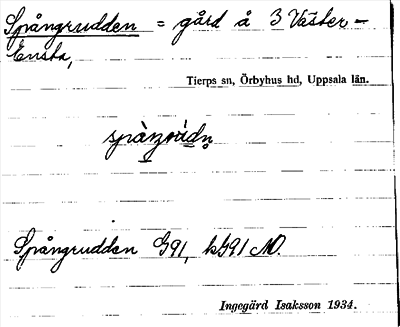 Spångrudden = gård å 3 Väster-
Ensta,
Tierps sn, Örbyhus hd, Uppsala län.
Spångrudden G91, kG91 NO.
Ingegärd Isaksson 1934.